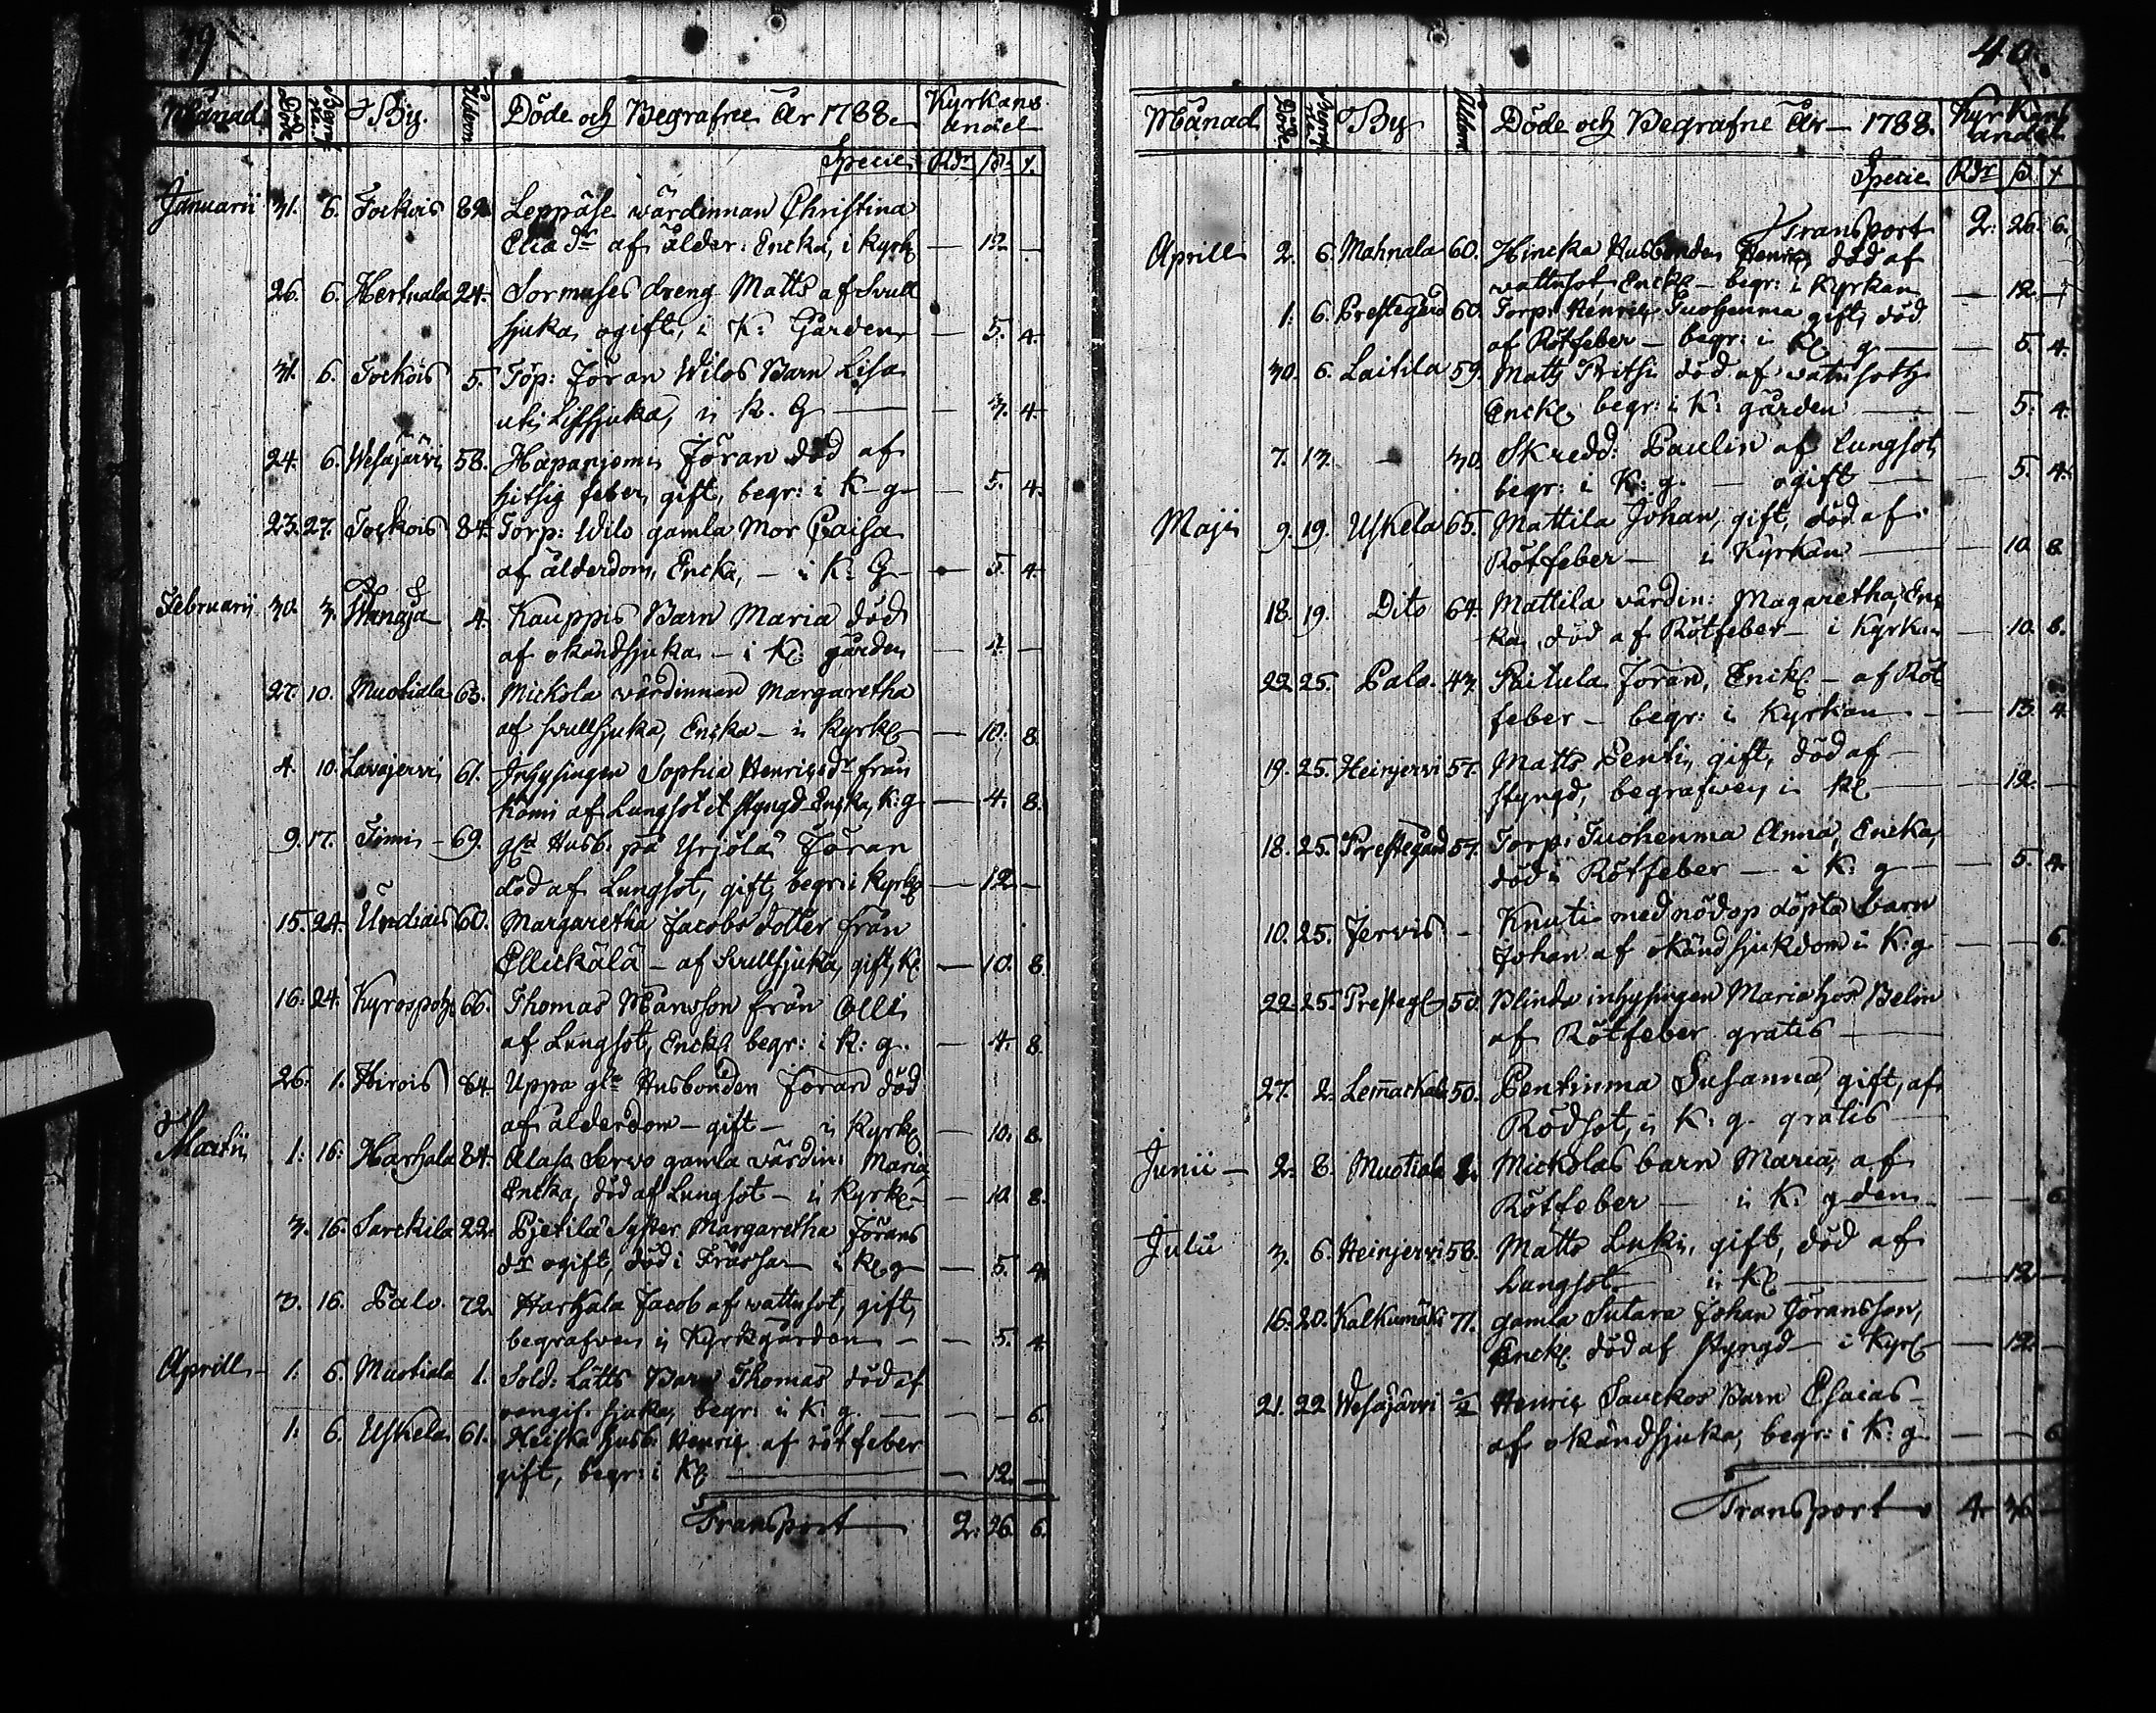 39
Månad Död Begr: By. Åldern Döde och Begrafne År 1788. Kyrkans andel
Specie Rdr ß. r.
Januarii 31. 6. Tockois 82 Leppäse wärdinnan Christina
Elia dr af ålder: Encka, i Kyrk — 12 —
26. 6. Hertuala 24. Sormuses dreng Matts af Swull
sjuka, ogift, i K: Gården — 5. 4.
31. 6. Tockois 5. Töp: Jöran Wilos Barn Lisa
uti , i K. G — 3. 4
24. 6. Wesajärvi 58. Hapanjemis Jöran död af
hitsig feber, gift, begr: i K-g — 5. 4.
23. 27. Tockois 84. Torp: Wilo gamla Mor Caisa
af ålderdom, Encka, — i K: G — 5. 4
Februarii 30. 3. Wanaja 4. Kauppis Barn Maria död
af okändsjuka — i K: gården — 4 —
27. 10. Muotiala 63. Mickola wärdinnan Margaretha
af swullsjuka, Encka — i Kyrk — 10. 8.
4. 10. Lavajervi 61. Inhysingen Sophia Henricsdr från
Komi af Lungsot et styngd Encka, K: g — 4. 8.
9. 17. Timi — 69. gla Husb. på Yrjölä Jöran
död af Lungsot, gift, begr: i Kyrk — 12 —
15. 24. Undiais 60. Margaretha Jacobs dotter från
Ellickälä — af Swullsjuka, gift, K. — 10. 8
16. 24. Kyrospoh 66. Thomas Mansson från Olli
af Lungsot, Enckl begr: i K: g. — 4. 8
26. 1. Hirois 84 Uppa gla Husbonden Jöran död
af ålderdom — gift — i Kyrk — 10. 8.
Martii 1: 16: Harhala 84. Alasa Servo gamla värdin: Maria,
Encka, död af Lungsot — i Kyrk — 10. 8.
3. 16. Sarckila 22. Pjetilä Syster Margaretha Jörans
dr ogift, död i Frässa i K g — 5. 4
3. 16. Palo 72. Harhala Jacob af wattusot, gift,
begrafven i Kyrkgården — — 5. 4
Aprill — 1: 6. Muotiala 1. Sold: Lätts Barn Thomas död af
sjuka, begr: i K: g. — — 6.
1. 6. Uskela 61. Heiska husb: Henric af rötfeber
gift, begr: i K — 12. —
Transport 2. 26. 6.
40.
Månad Död Begr: By Åldern Döde och Begrafne År — 1788. Kyrkans andel
Specie Rdr ß r
Transport 2: 26. 6.
Aprill 2. 6. Mahnala 60. Hincka Husbonden Henric, död af
wattusot, Enckl — begr: i Kyrkan — 12. —
1. 6. Prestegård 60. Torp: Henric Tuohenma gift, död
af Rötfeber — begr: i K: g — 5. 4.
30. 6. Laitila 59. Matts Prithi död af watusoth
Enckl, begr: i K: gården — 5. 4.
7. 13. — 30. Skredd: Paulin af lungsot,
begr: i K: g. — ogift — 5. 4.
Maji 9. 19. Uskela 65. Mattila Johan, gift, död af
Rötfeber — i Kyrkan — 10. 8.
18. 19. Dito 64. Mattila värdin: Magaretha, En
ka, död af Rötfeber — i Kyrkan — 10. 8.
22. 25. Palo. 43. Paitula Jöran, Enckl — af Röt
feber — begr: i Kyrkan — 13. 4.
19. 25. Heinjervi 57. Matts Penti, gift, död af
styngd, begrafven i K — 12. —
18. 25. Prestegård 57. Torp: Tuohenma Anna, Encka,
död i Rötfeber — i K: g — 5. 4.
10. 25. Jervis — Knuti med nödop döpta barn
Johan af okänd sjukdom i K: g. — — 6.
22. 25. Presteg 50. Blinda inhysingen Maria hos Belin
af Rötfeber gratis —
27. 2. Lemackala 50. Pentinma Susanna, gift, af
Rödsot, i K: g. gratis —
Junii — 2. 8. Muotiala 2. Mickolas barn Maria, af
Rötfeber — i K: gden — — 6.
Julii 3. 6. Heinjervi 58. Matts Luki, gift, död af
Lungsot — i K — 12 —
16. 20. Kalkumäki 71. gamla Sutara Johan Jöransson,
Enckl. död af styngd — i Kyrk — 12. —
21. 22 Wesajärvi Henric Sauckos Barn Esaias —
af okändsjuka, begr: i K: g. — — 6
Transport 4. 36. —